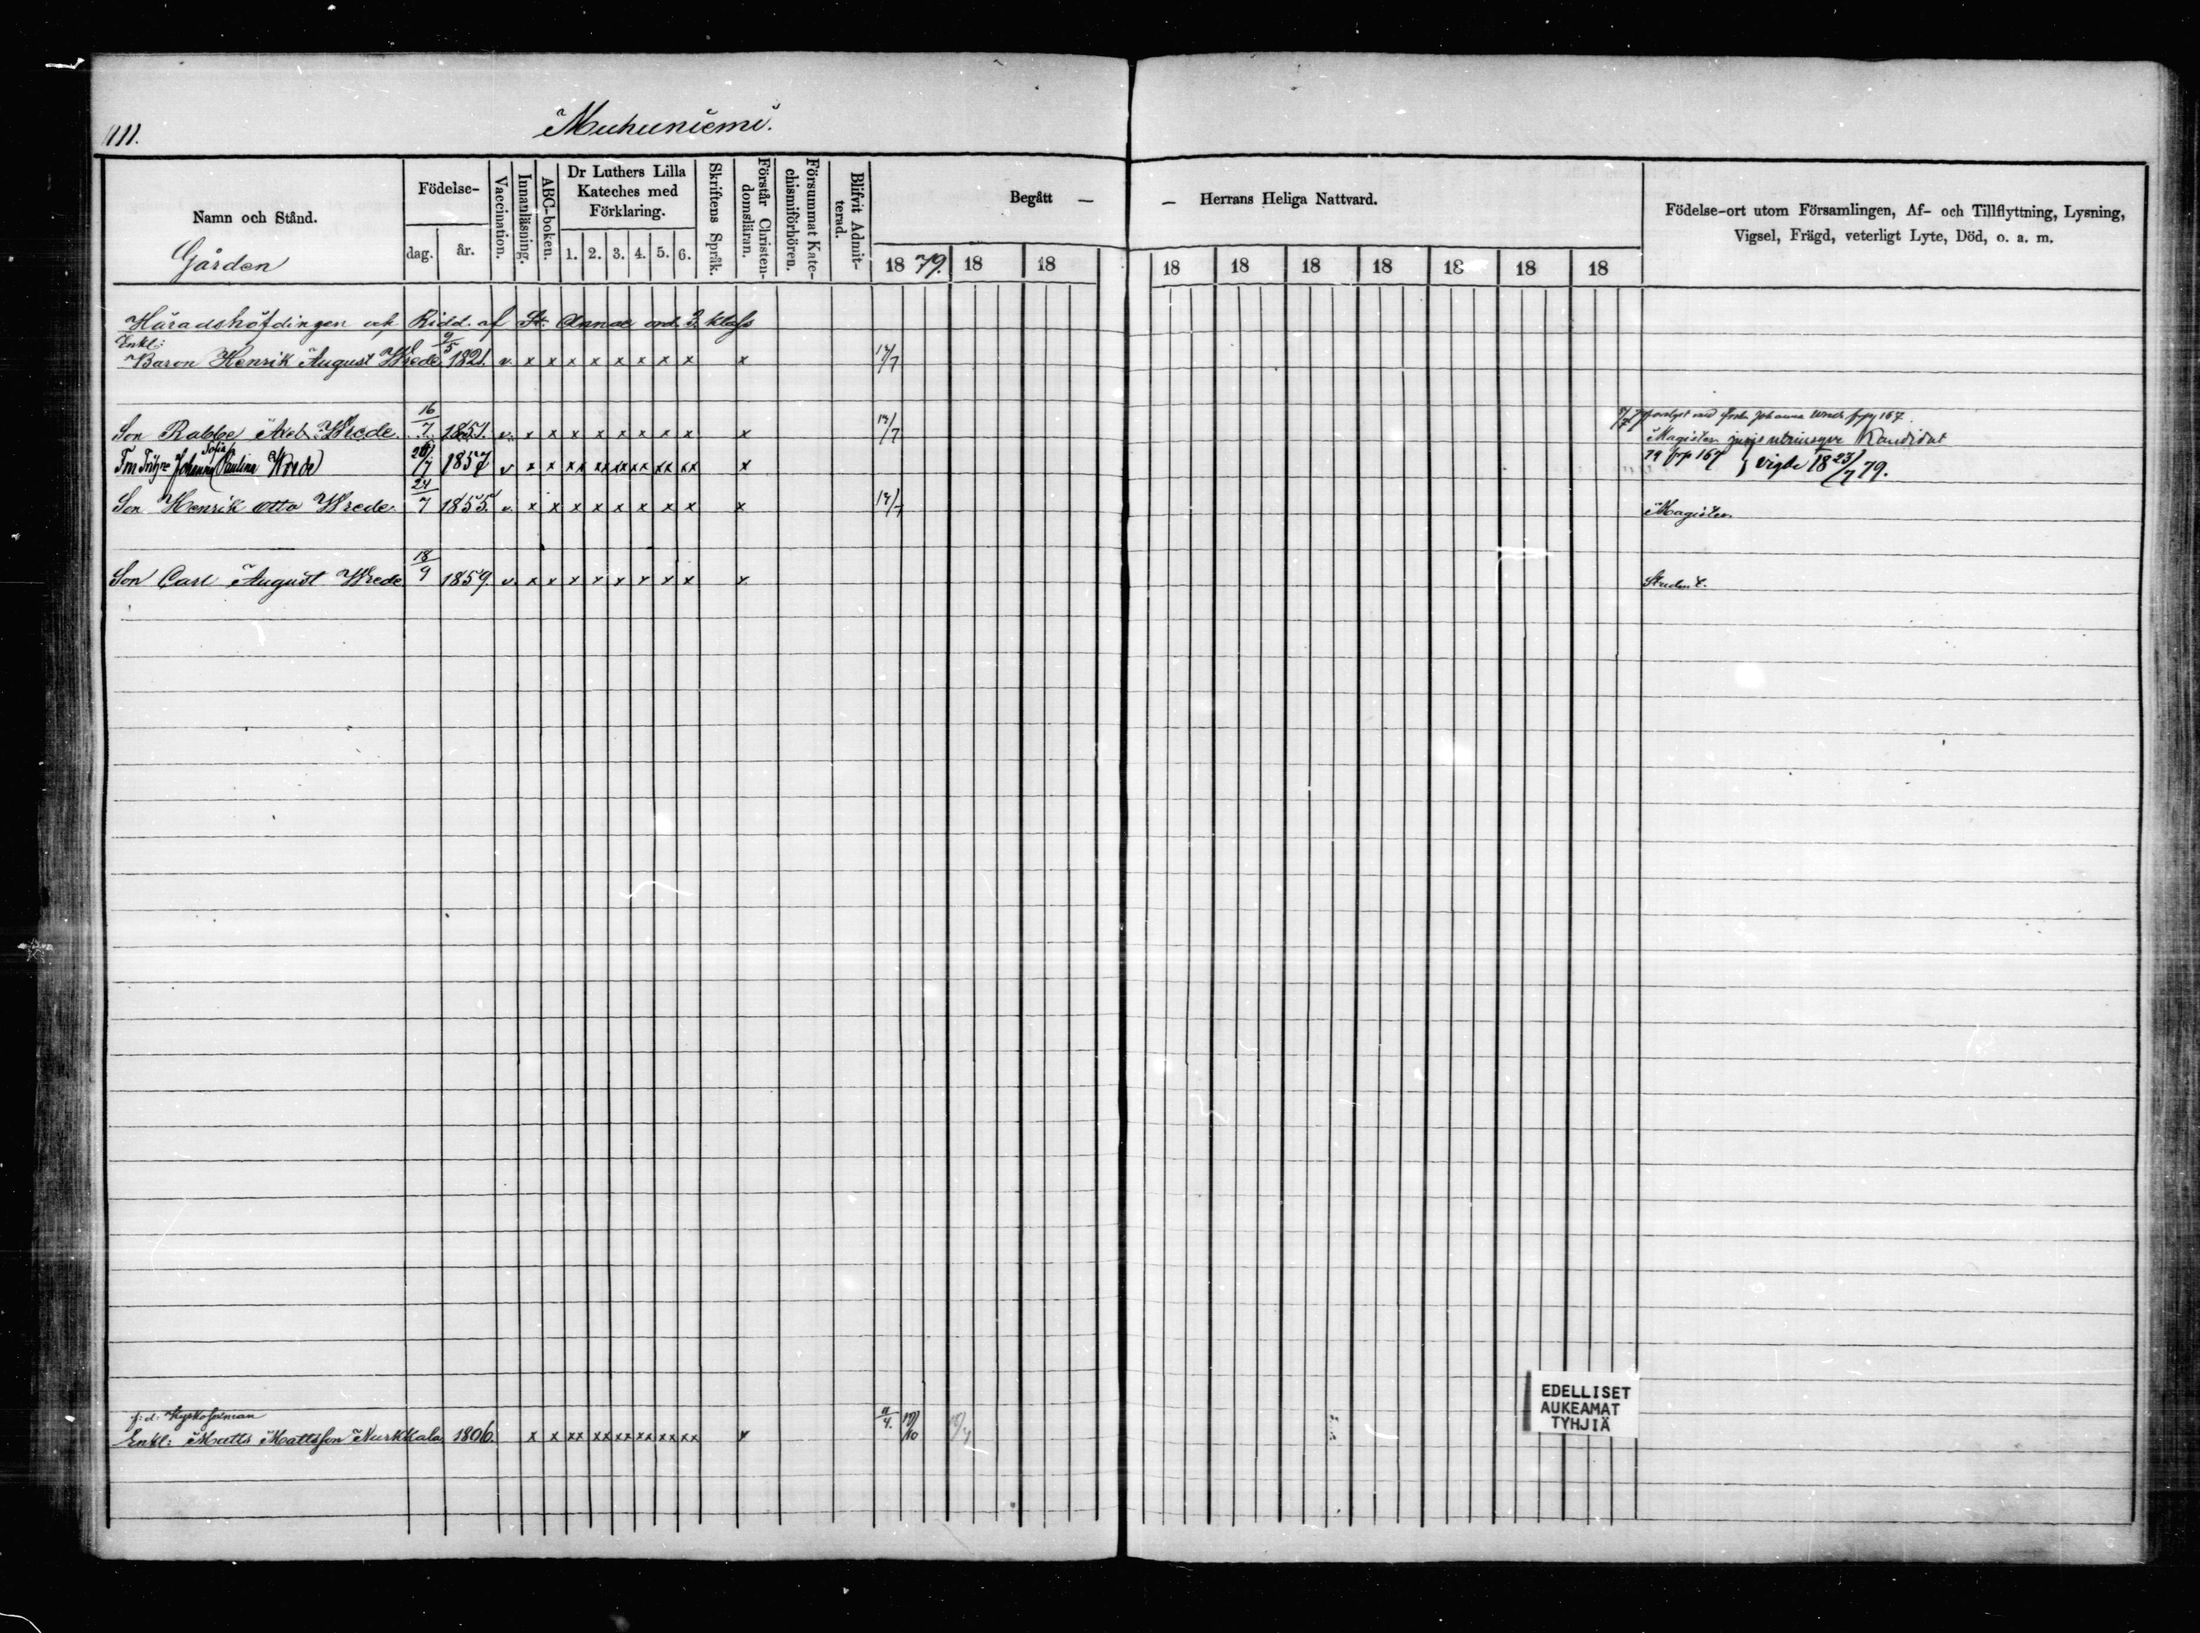 111.
Muhuniemi.
Namn och Stånd.
Gården
Födelse-
dag.
år.
Vaccination.
Innanläsning.
ABC-boken.
Dr Luthers Lilla
Kateches med
Förklaring.
1. 2. 3. 4. 5. 6.
Skriftens Språk.
Förstår Christen-
domsläran.
Försummat Kate-
chismiförhören.
Blifvit Admit-
terad.
Begått —
18 79. 18 18
— Herrans Heliga Nattvard.
18 18 18 18 18 18 18
Födelse-ort utom Församlingen, Af- och Tillflyttning, Lysning,
Vigsel, Frägd, veterligt Lyte, Död, o. a. m.
Häradshöfdingen och Ridd. af St. Annae ord. 3. klass
Enkl:
Baron Henrik August Wrede 1821. v. x x x x x x x x x 14/7
Johanna Wrede pag 167
Son Rabbe Axel Wrede. 16/7 1851. v. x x x x x x x x x 14/7 Magister juris utriusque Kandidat
Sofia
Johanna Paulina Wrede 1857 v x x xx xx xx xx xx xx x 79 pag 167 vigde 18 23/7 79.
Son Henrik Otto Wrede. 24/7 1855. v. x x x x x x x x x 14/7 Magister.
Son Carl August Wrede 18/9 1859. v. x x x x x x x x x Student.
EDELLISET
AUKEAMAT
TYHJIÄ
f: d: Kyrkoförman
Enkl: Matts Mattsson Nurkkala 1806. x x xx xx xx xx xx xx x 11/4. 19/10